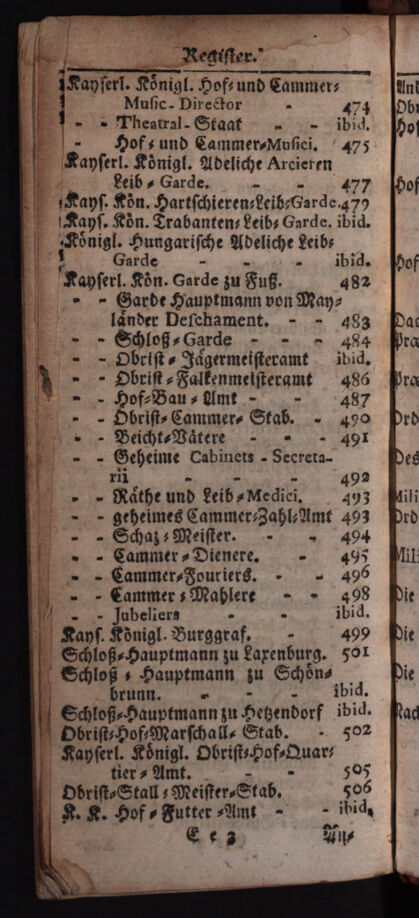 Register.
Kayserl. Königl. Hof- und Cammer-
Music-Director - 474
- - Theatral-Staat - - ibid.
- Hof- und Cammer-Musici. 475
Kayserl. Königl. Adeliche Arcieren
Leib-Garde. - - 477
Kays. Kön. Hartschieren-Leib-Garde. 479
Kays. Kön. Trabanten-Leib-Garde. ibid.
Königl. Hungarische Adeliche Leib-
Garde - - - ibid.
Kayserl. Kön. Garde zu Fuß. 482
- - Garde Hauptmann von May-
länder Deschament. - - 483
- - Schloß-Garde - - 484
- - Obrist-Jägermeisteramt ibid.
- - Obrist-Falkenmeisteramt 486
- - Hof-Bau-Amt - - 487
- - Obrist-Cammer-Stab. - 490
- - Beicht-Vätere - - - 491
- - Geheime Cabinets-Secreta-
rii - - - 492
- - Räthe und Leib-Medici. 493
- - geheimes Cammer-Zahl-Amt 493
- - Schaz-Meister. - - 494
- - Cammer-Dienere. - 495
- - Cammer-Fouriers. - - 496
- - Cammer-Mahlere - - 498
- - Jubeliers - - ibid.
Kays. Königl. Burggraf. - 499
Schloß-Hauptmann zu Laxenburg. 501
Schloß-Hauptmann zu Schön-
brunn. - - - ibid.
Schloß-Hauptmann zu Hetzendorf ibid.
Obrist-Hof-Marschall-Stab. - 502
Kayserl. Königl. Obrist-Hof-Quar-
tier-Amt. - - 505
Obrist-Stall-Meister-Stab. 506
K. K. Hof-Futter-Amt - - ibid.
E e 3 An-